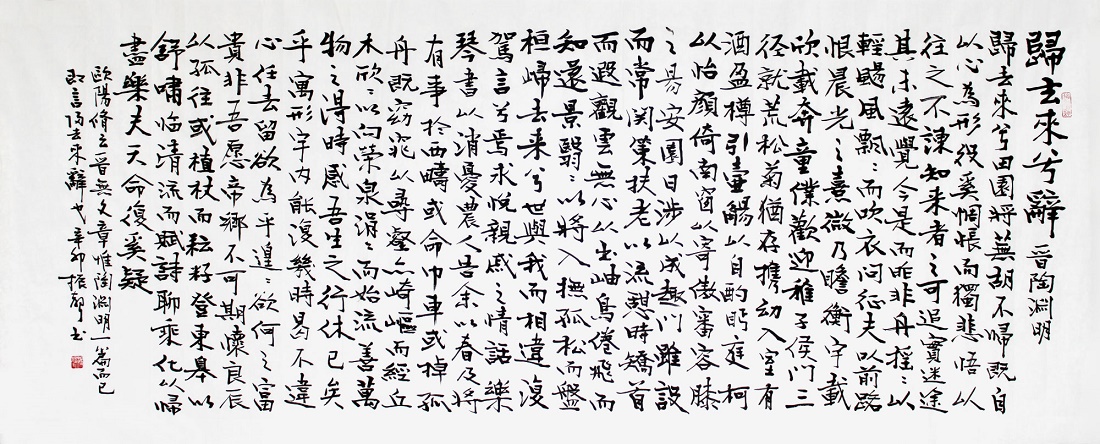 歸去來兮辭 晉陶淵明
歸去來兮田園將蕪胡不歸既自
以心為形役奚惆悵而獨悲悟以
往之不諫知来者之可追實迷途
其未遠覺今是而昨非舟摇〻以
輕颺風飄〻而吹衣问征夫以前路
恨晨光之熹微乃瞻衡宇載
欣載奔童僕歡迎稚子侯门三
径就荒松菊猶存携幼入室有
酒盈樽引壺觴以自酌眄庭柯
以怡顔倚南窗以寄傲審容膝
之易安園日涉以成趣门雖設
而常関策扶老以流憩時矯首
而遐觀雲無心以出岫鳥倦飛而
知還景翳〻以將入撫孤松而盤
桓歸去来兮世與我而相違復
駕言兮焉求悦親戚之情話樂
琴書以消憂農人告余以春及將
有事於西疇或命巾車或棹孤
舟既窈窕以尋壑亦崎嶇而經丘
木欣〻以向荣泉涓〻而始流善萬
物之得時感吾生之行休已矣
乎寓形宇内能復幾時曷不違
心任去留欲為乎遑〻欲何之富
貴非吾愿帝鄉不可期懷良辰
以孤往或植杖而耘耔登東皋以
舒嘯临清流而賦詩聊乘化以歸
盡樂夫天命復奚疑
歐陽脩云晉無文章惟陶淵明一篇而已
即言歸去来辭也辛卯振书